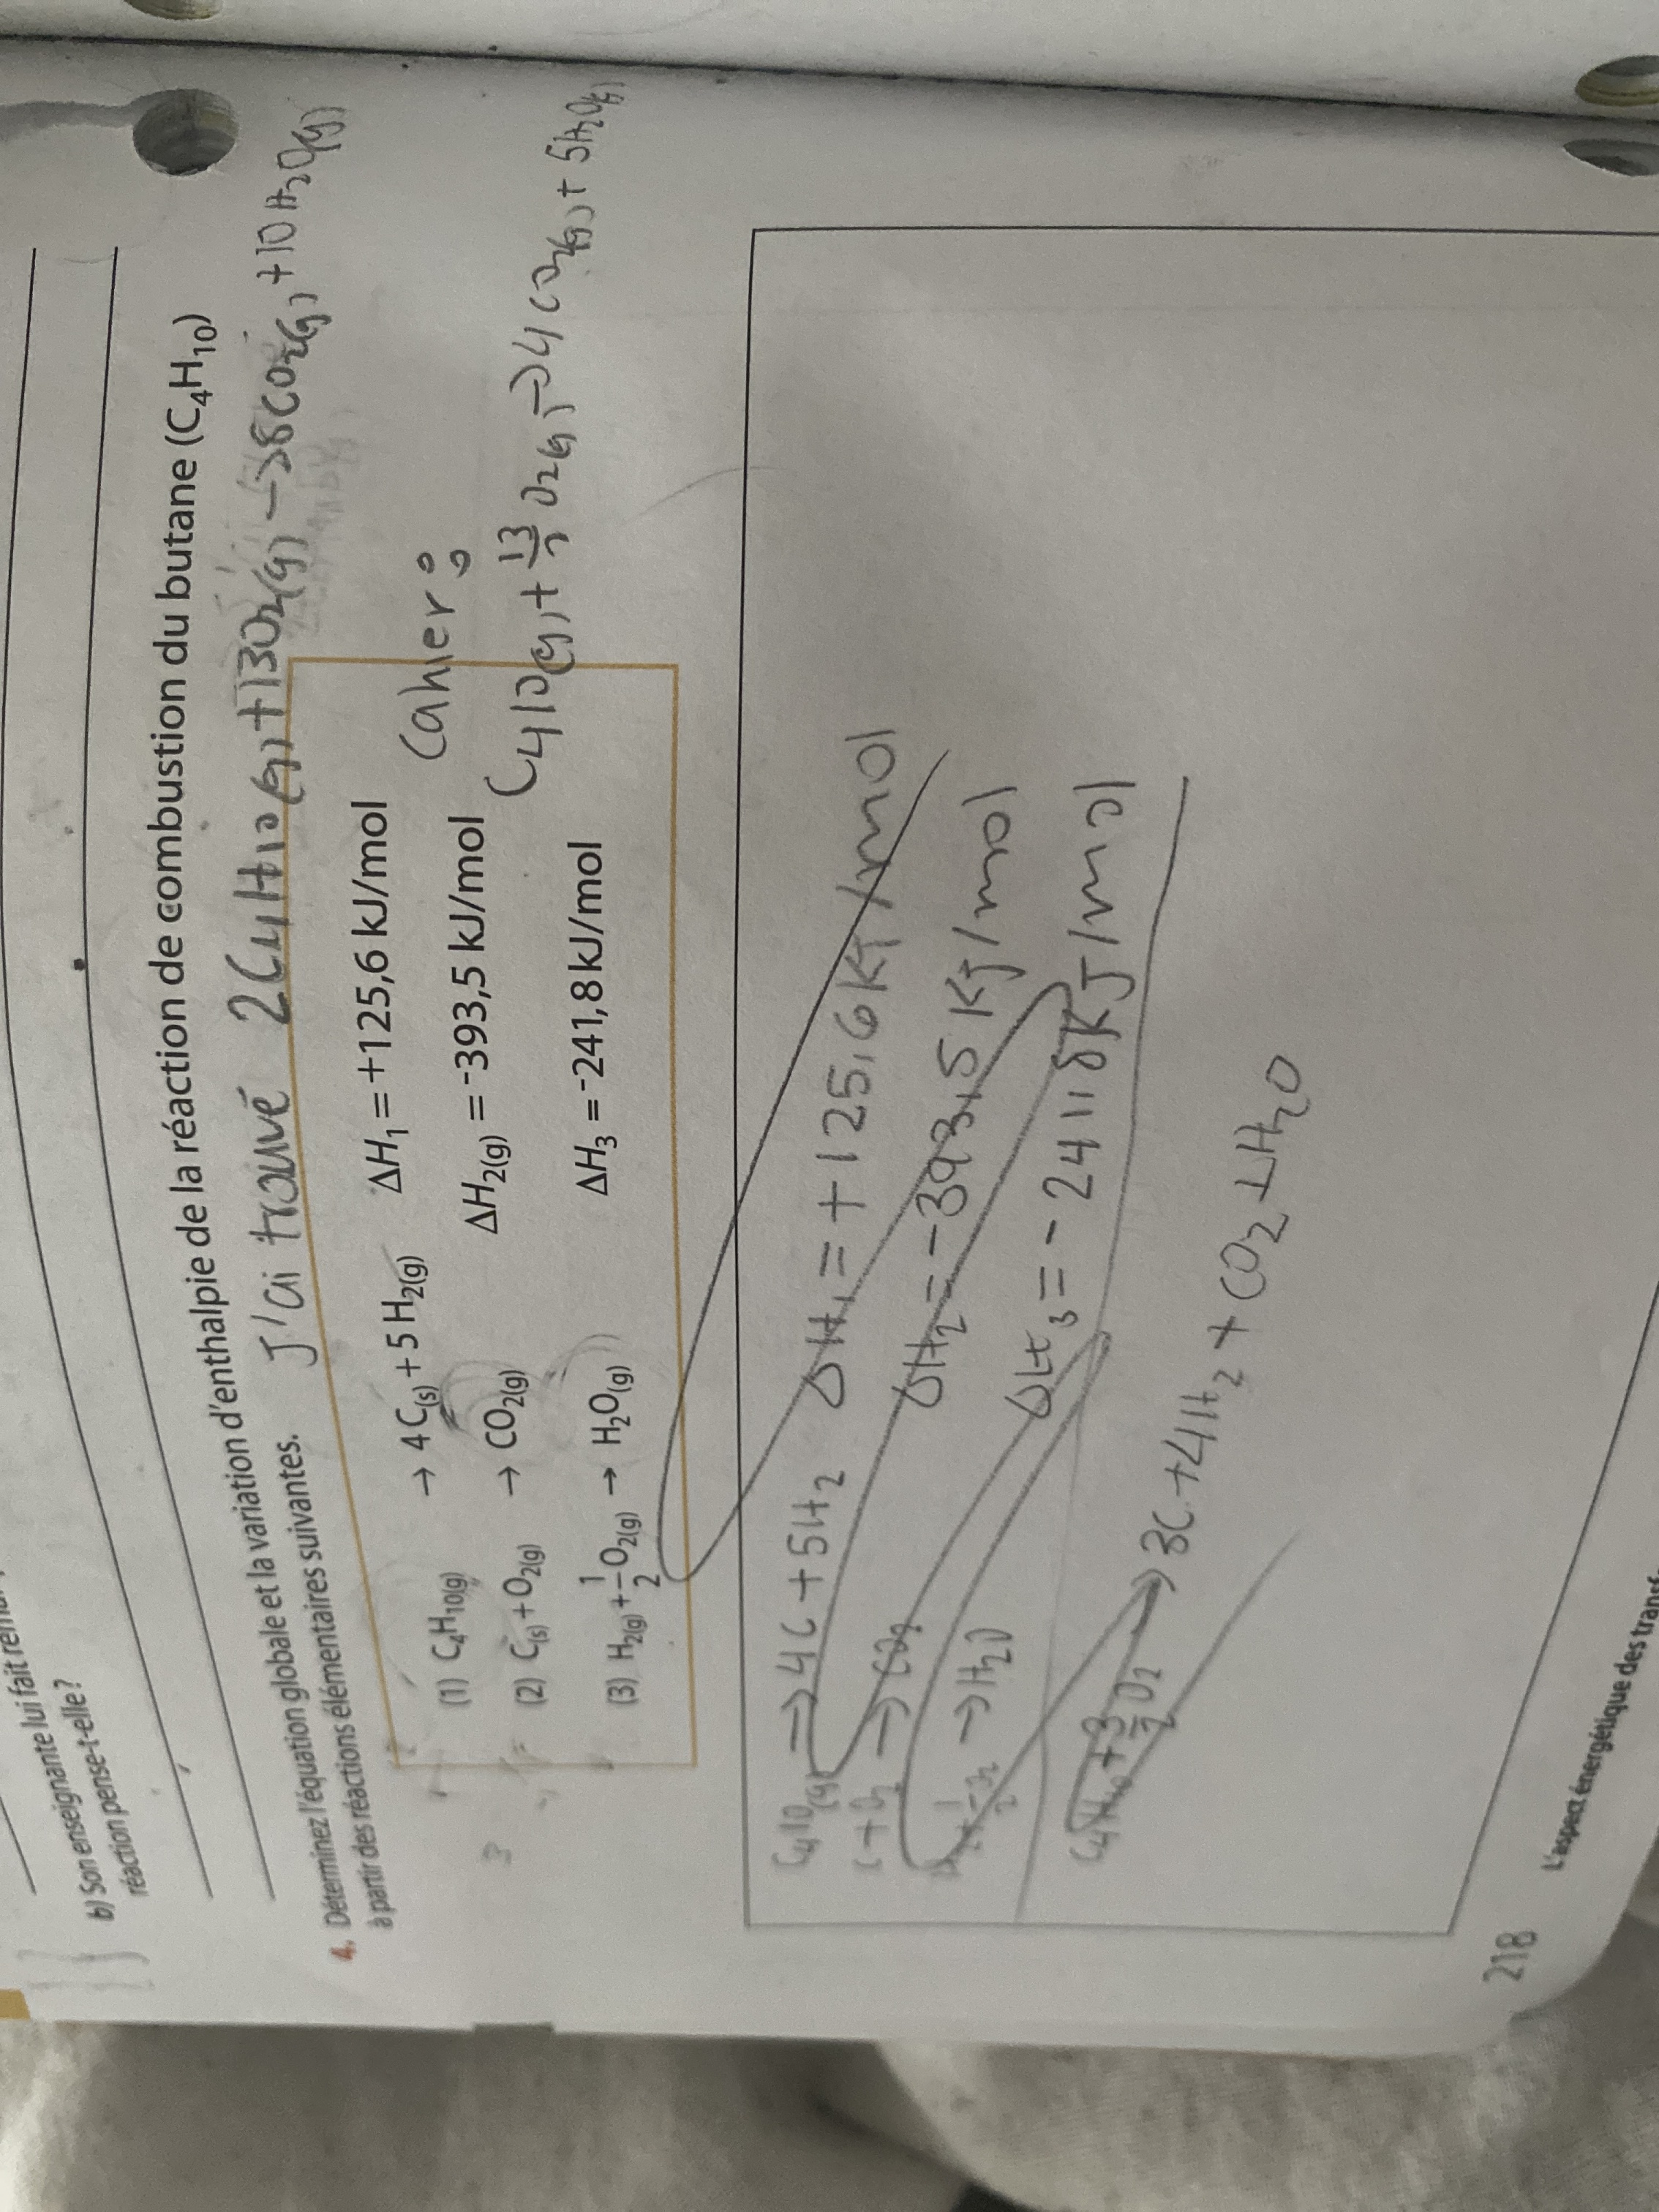 b) Son enseignante lui fait
réaction pense-t-elle?
4. Déterminez l'équation globale et la variation d'enthalpie de la réaction de combustion du butane (C4H10)
à partir des réactions élémentaires suivantes.
J'ai trouvé 2C4H10(g)+13O2(g)→8CO2(g)+10H2O(g)
(1) C4H10(g) → 4 C(s) + 5 H2(g) ΔH1 = +125,6 kJ/mol
(2) C(s) + O2(g) → CO2(g) ΔH2(g) = -393,5 kJ/mol
(3) H2(g) + 1/2 O2(g) → H2O(g) ΔH3 = -241,8 kJ/mol
Cahier:
C410(g)+13/2 O2(g)→4CO2(g)+5H2O(g)
C410(g) ⇒4C+5H2 ΔH1=+125,6KJ/mol
C+O2 ⇒CO2 ΔH2=-393,5KJ/mol
→H2O ΔH3=-241,8KJ/mol
C4H10+3/2O2→3C+4H2+CO2+H2O
218
L'aspect énergétique des